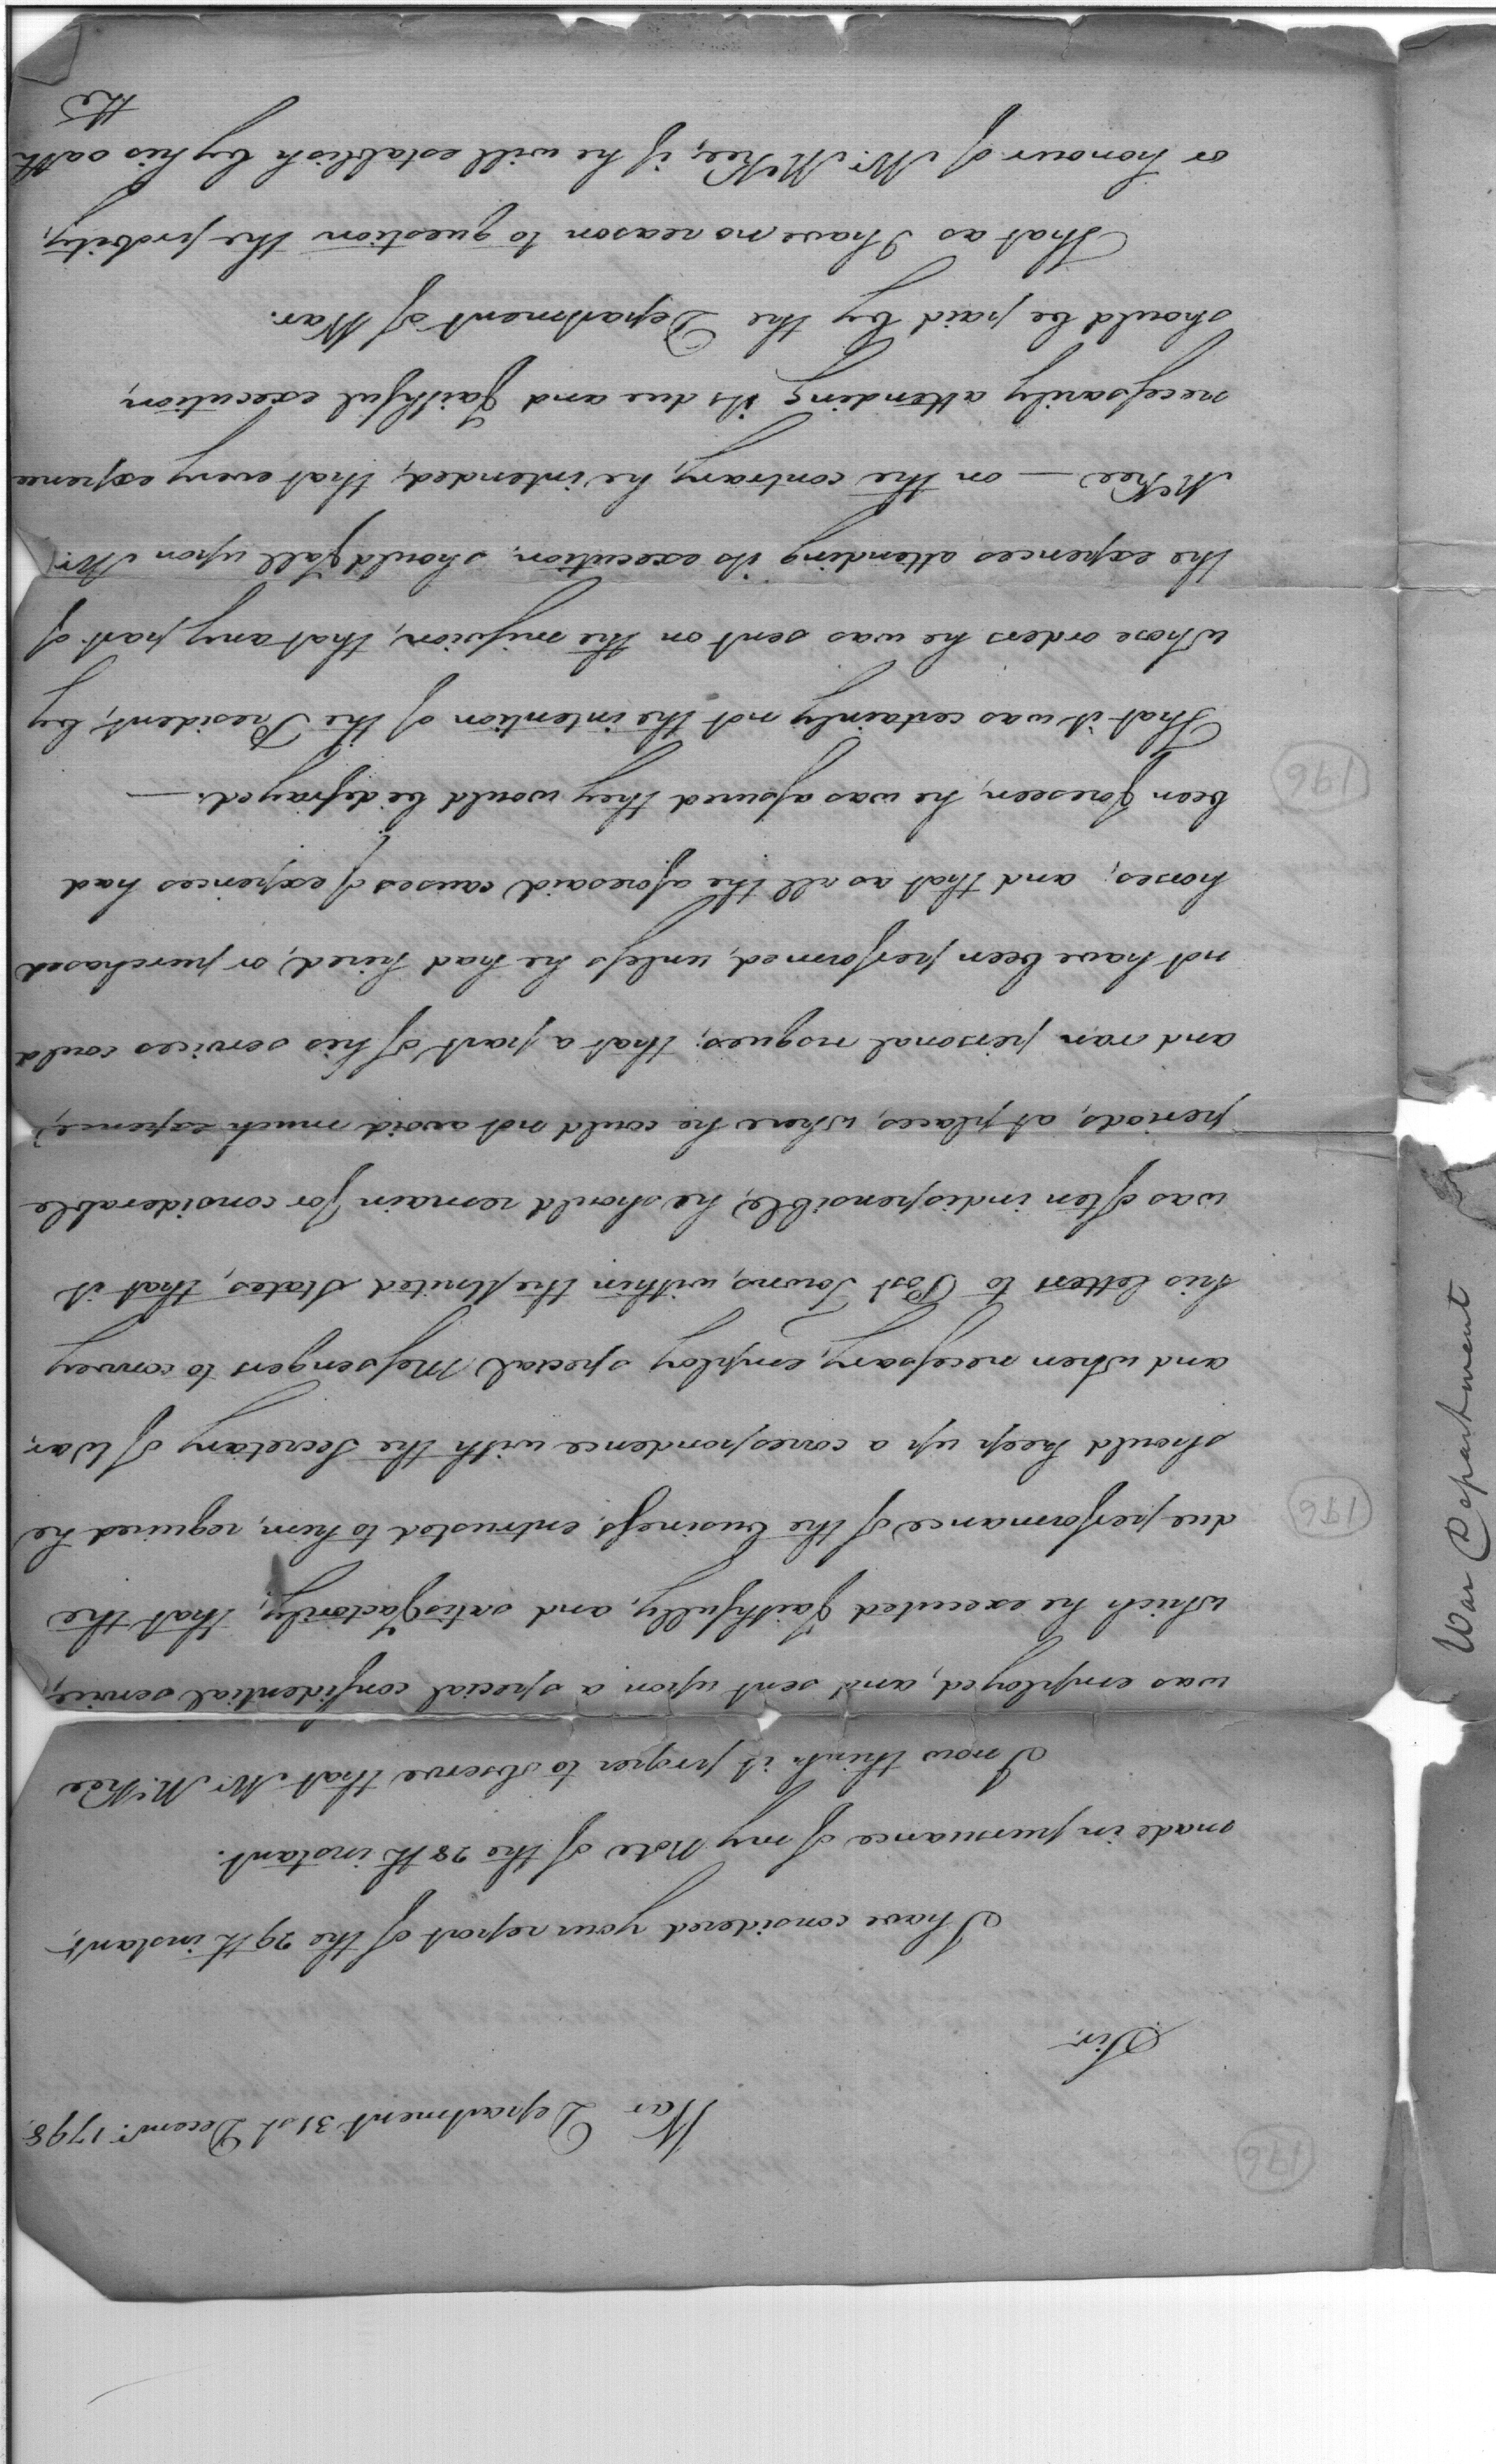 176
War Department 31st Decemr. 1798.
Sir,
I have considered your report of the 29th instant,
made in pursuance of my Note of the 28th instant.
I now think it proper to observe that Mr. McKee
was employed, and sent upon a special confidential service,
which he executed faithfully, and satisfactorily; that the
due performance of the business, entrusted to him, required he
should keep up a correspondence with the Secretary of War,
and when necessary, employ special Messengers to convey
his letters to Post Towns, within the United States, that it
was often indispensible, he should remain for considerable
periods, at places, where he could not avoid much expence,
and ran personal risques; that a part of his services could
not have been performed, unless he had hired, or purchased
horses; and that as all the aforesaid causes of expences had
been foreseen, he was assured they would be defrayed. —
That it was certainly not the intention of the President, by
whose orders he was sent on the mission, that any part of
the expences attending its execution, should fall upon Mr.
McKee — on the contrary, he intended, that every expence
necessarily attending its due and faithful execution,
should be paid by the Department of War.
That as I have no reason to question the probity,
or honour of Mr. McKee, if he will establish by his oath
the
196
196
War Department